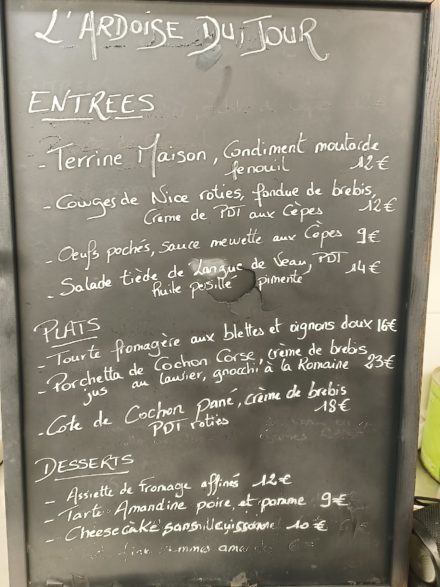 L'ARDOISE DU JOUR
ENTREES
- Terrine Maison, Condiment moutarde
fenouil 12€
- Courges de Nice roties, fondue de brebis,
Crème de PDT aux Cèpes 12€
- Oeufs pochés, sauce meurette aux Cèpes 9€
- Salade tiède de Langue de Veau, PDT
Huile persillé pimenté 14€
PLATS
- Tourte fromagère aux blettes et oignons doux 16€
- Porchetta de Cochon Corse, crème de brebis
jus au laurier, gnocchi à la Romaine 23€
- Cote de Cochon Pané, crème de brebis
PDT roties 18€
DESSERTS
- Assiette de Fromage affinés 12€
- Tarte Amandine poire, et pomme 9€
- Cheesecake sans cuisson 10€